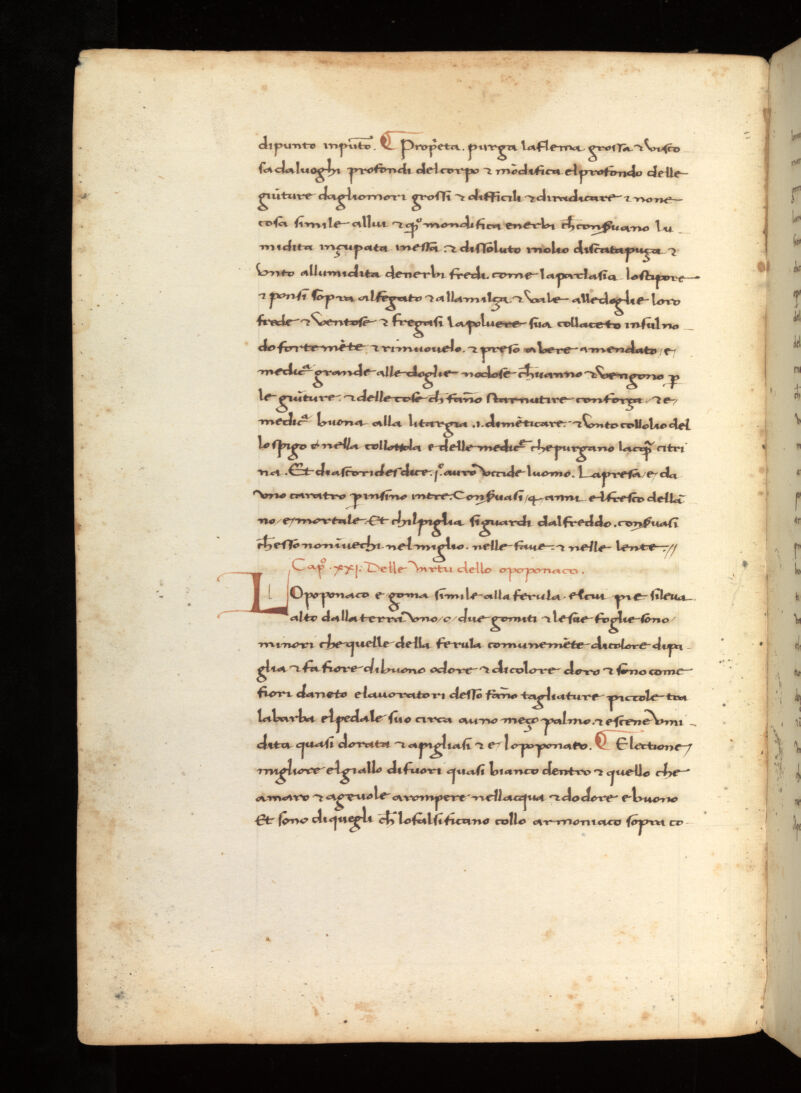 dipunto inpūto. Prop̄eta. purga laflema grossa ⁊ visco
sa daluoghi profondi delcorpo ⁊ mōdifica elprofondo delle
giūture dagliomori grossi ⁊ difficili ⁊ diradicare ⁊ none
cosa simile allui ⁊ mondifica enerbi
midita ⁊ dissoluto
vnto allumidita denerbi fredi. come laparlasia lostipore
⁊ ponsi sopra alfegato ⁊ allamilça ⁊ vale alledoglie loro
frede ⁊ ventose ⁊ fregasi lapoluere sua collaceto insulno
do fortemēte ⁊ rimuouelo. ⁊ preso abere amendato e
grande alle doglie nodose ch̄ vanno ⁊ vengono ꝑ
le giūture. ⁊ delle cose ch̄ fāno starnutire conforça ⁊ e
buona alla litargia .i. dimēticare. ⁊ vnto collolio del
lospigo e delle chepurgano citri
na. Et diascorides dice. vccide luomo. Lapresa e da
vno caratro ꝑinsino intre. anni elfresco dellā
no e mortale. Et chilpiglia siguardi dalfreddo.
ch̄ esso noninuechi nelmiglio. nelle faue. ⁊ nelle lente
Cap̊. xxj. Delle virtu dello opoponaco.
LOpoponaco e goma simile alla ferula. elcui pie sileua
alto dalla terra vno o due gomiti ⁊ lesue foglie sono
minori che quelle della ferula comunemēte dicolore dipa
glia ⁊ fa fiore dibuono odore ⁊ dicolore doro ⁊ sono come
fiori daneto elauoratori desso fāno tagliature piccole tra
labarba elpedale suo circa auno meço palmo. ⁊ escene vmi
dita quasi dorata ⁊ apigliasi ⁊ e lopoponato. Electione
migliore elgiallo difuori quasi bianco dentro ⁊ quello che
amaro ⁊ ageuole arompere nellacqua ⁊ dodore e buono
Et sono diquegli ch̄ lofalsificano collo armoniaco sopra co